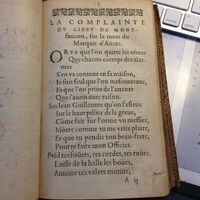 LA COMPLAINTE
DU GIBET DE MONT-
faucon, sur la mort du
Marquis d'Ancre.
ORys que l'on quitte les armes
Que chacun exempt des alar-
mes
S'en va content en sa maison,
Je suis seul que l'on mescontente,
Et que l'on prive de l'attente
Que j'auois auec raison.
Sur Jean Guillaume qu'on
Sur le haut pilier de la greue,
Comme fait sur l'orme vn
Môtre comme tu me veux plaire,
Et que tu es pendant ton beau-frere,
Pourse faire mon Officier.
Préd tes foüets, tes cordes, tes roües,
L'aisse de la halle les boües,
Ameine tes valets mutins,
A ij